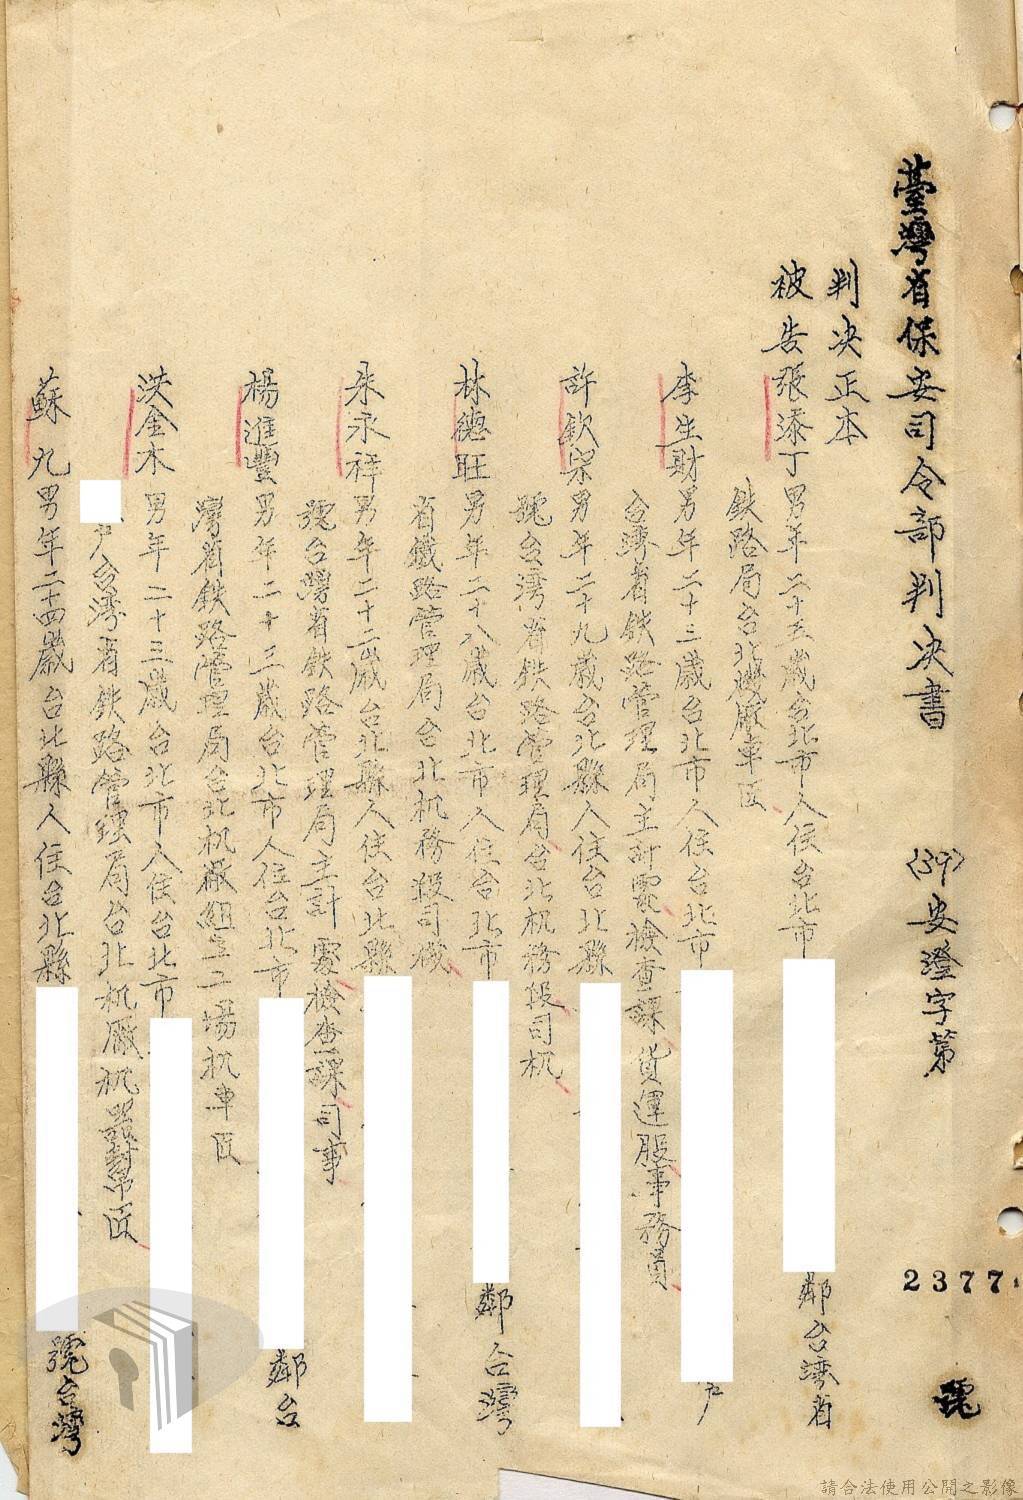 臺灣省保安司令部判决書
(39)安澄字第2377號
判决正本
被告張添丁男年二十五歲台北市人住台北市鄰台湾省
鉄路局台北機廠車匠
李生財男年二十三歲台北市人住台北市戶
台湾省鉄路管理局主計處檢查課貨運股事務員
許欽宗男年二十九歲台北縣人住台北縣
號台湾省鉄路管理局台北机務段司机
林德旺男年二十八歲台北市人住台北市鄰台灣
省鐵路管理局台北机務段司機
朱永祥男年二十二歲台北縣人住台北縣
號台灣省鉄路管理局主計處檢查課司事
楊進豐男年二十三歲台北市人住台北市鄰台
灣省鉄路管理局台北机廠組立工場机車匠
洪金木男年二十三歲台北市人住台北市
戶台湾省鉄路管理局台北机廠机器封吊匠
蘇九男年二十四歲台北縣人住台北縣號台灣
請合法使用公開之影像